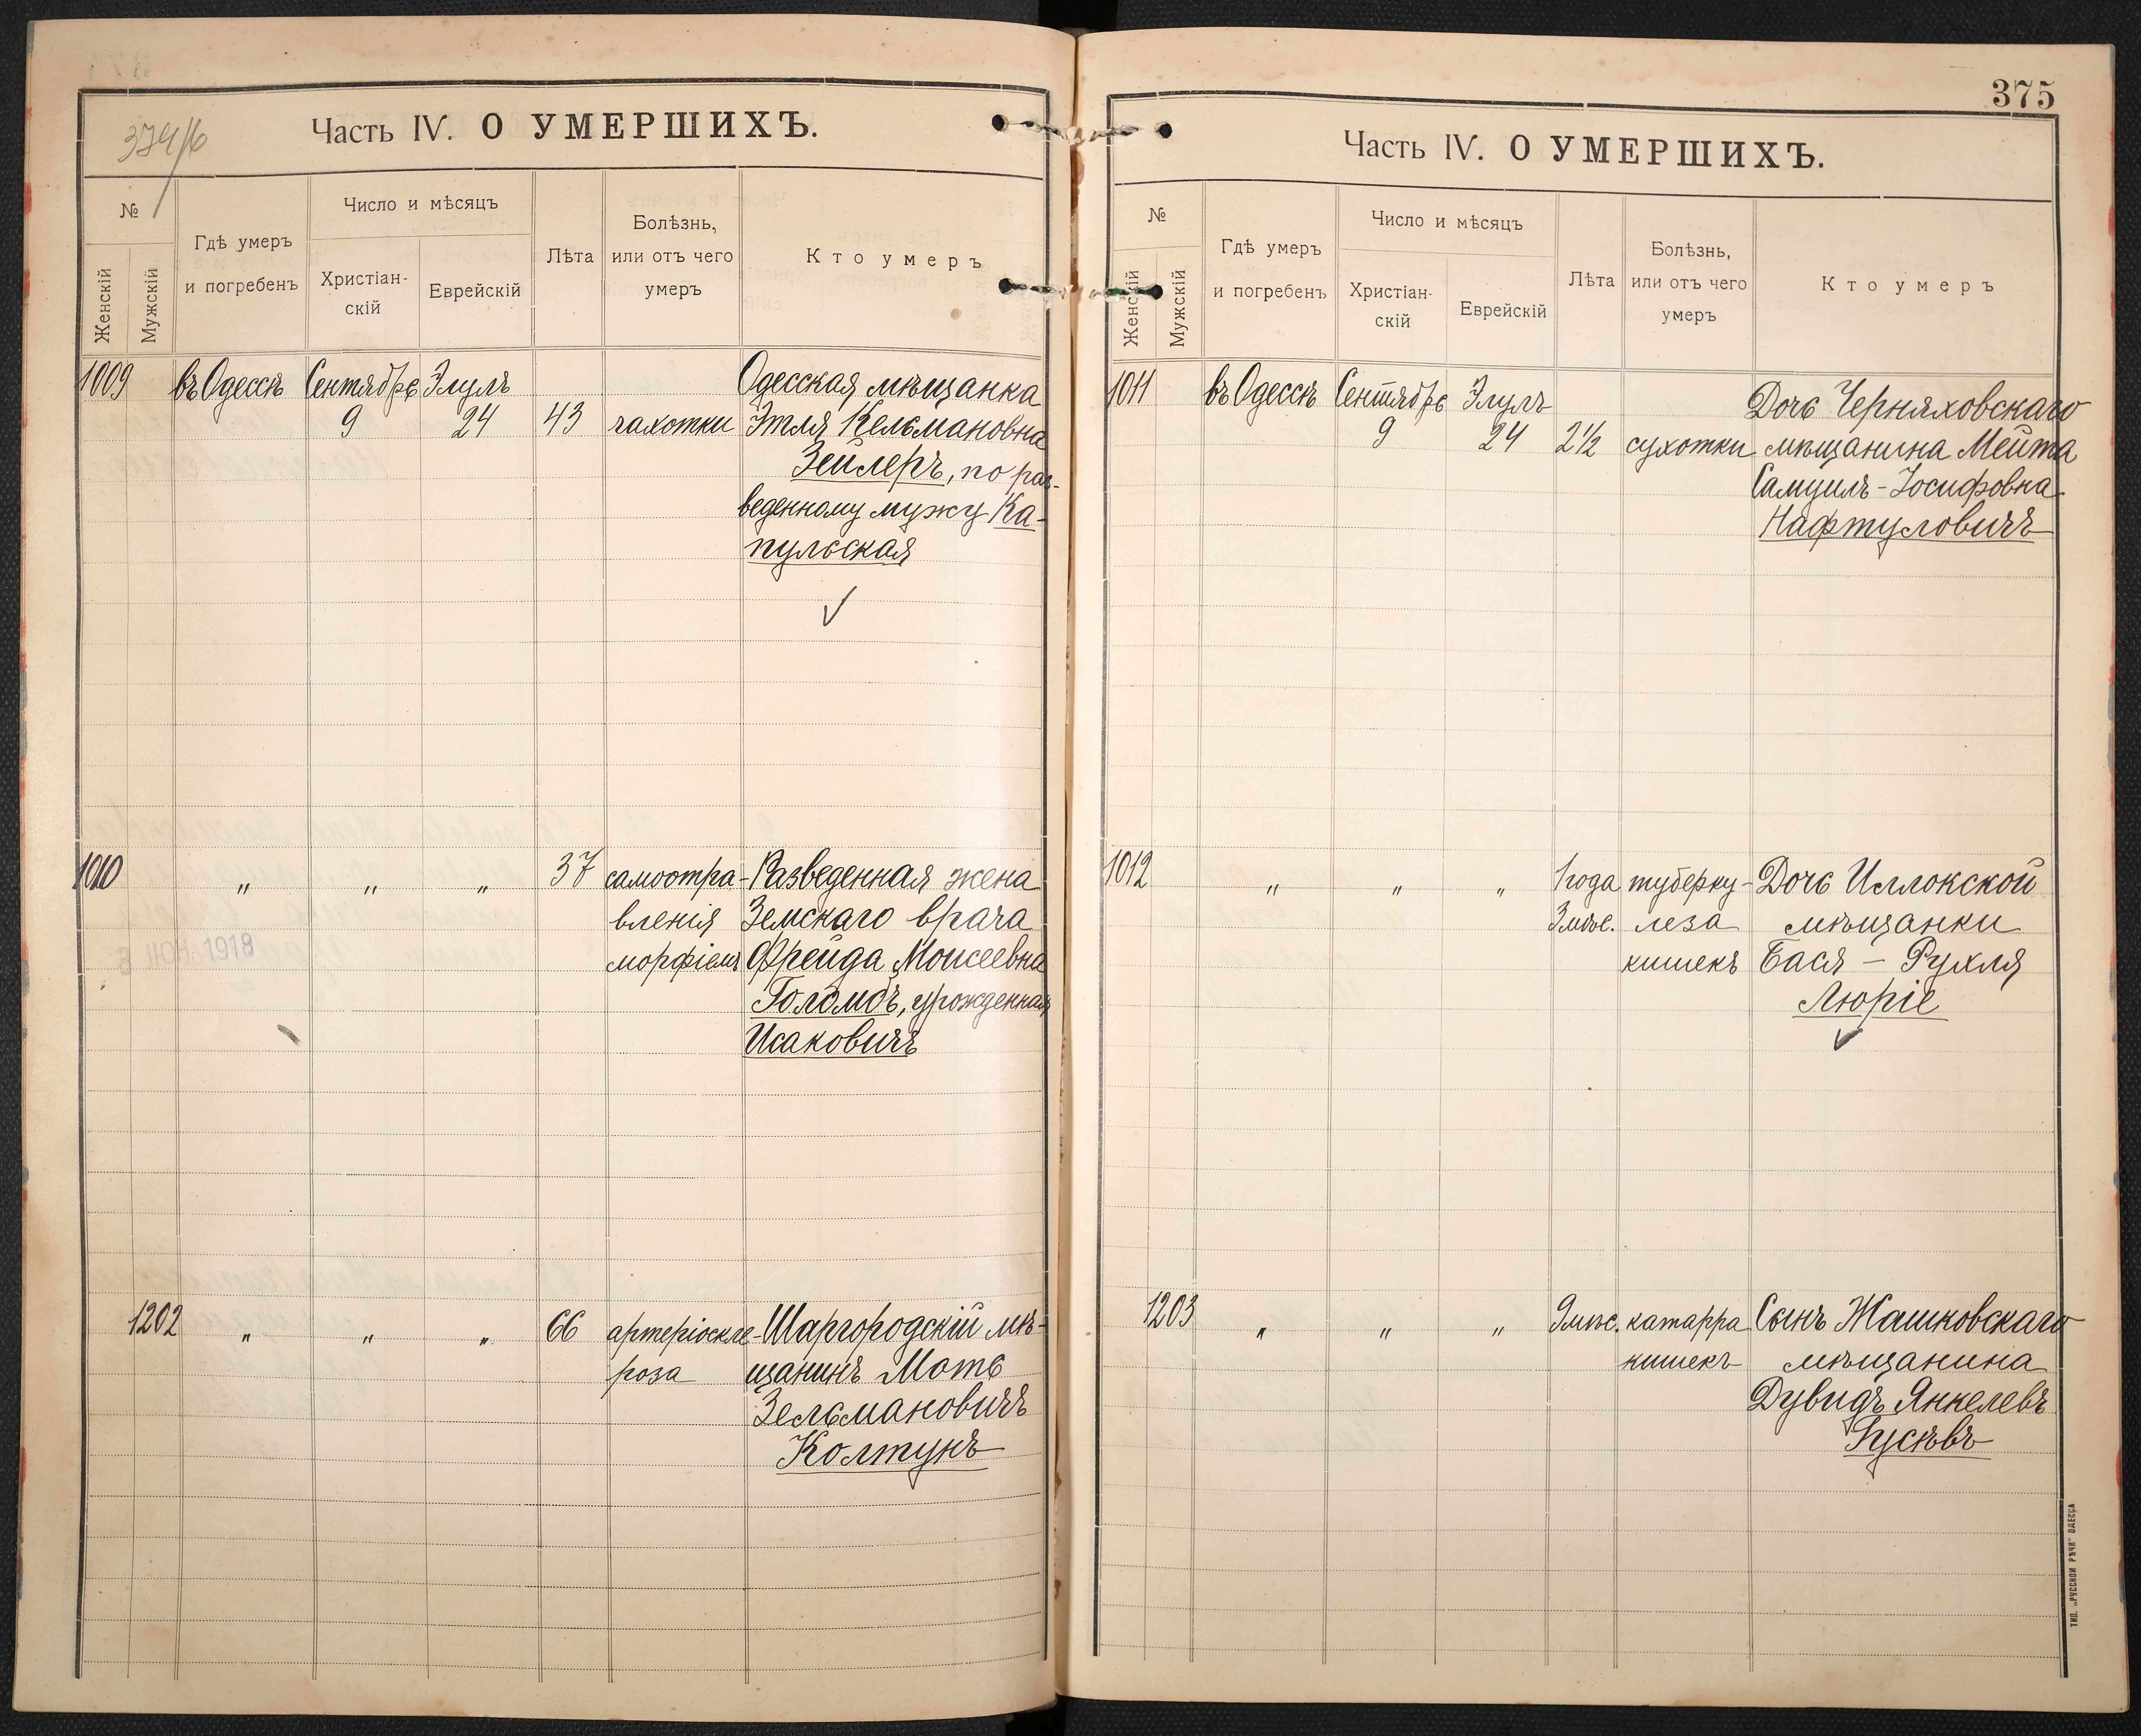 374/б
Часть IV. О УМЕРШИХЪ.
№
Женскій
Мужскій
Гдѣ умеръ
и погребенъ
Число и мѣсяцъ
Христіан-
скій
Еврейскій
Лѣта
Болѣзнь,
или отъ чего
умеръ
Кто умеръ
1009 въ Одессѣ Сентябрь Элулъ Одесская мѣщанка
9 24 43 чахотки Этля Кельмановна
Зейлеръ, по раз-
веденному мужу Ка-
пульская
1010 " " " 37 самоотра- Разведенная жена
вленія Земскаго врача
морфіемъ Фрейда Моисеевна
3 ІЮН. 1918
Голомбъ, урожденная
Исаковичъ
1202 " " " 66 артеріоскле- Шаргородскій мѣ-
роза щанинъ Моть
Зельмановичъ
Колтунъ
375
Часть IV. О УМЕРШИХЪ.
№
Женскій
Мужскій
Гдѣ умеръ
и погребенъ
Число и мѣсяцъ
Христіан-
скій
Еврейскій
Лѣта
Болѣзнь,
или отъ чего
умеръ
Кто умеръ
1011 въ Одессѣ Сентябрь Элулъ Дочь Черняховскаго
9 24 2½ сухотки мѣщанина Мейта
Самуилъ-Іосифовна
Нафтуловичъ
1012 " " " 1 года туберку- Дочь Иллокской
3 мѣс. леза мѣщанки
кишекъ Бася - Рухля
Люріе
1203 " " " 9 мѣс. катарра Сынъ Жашковскаго
кишекъ мѣщанина
Дувидъ Янкелевъ
Гусѣвъ
ТИП. „РУССКОЙ РѢЧИ" ОДЕССА